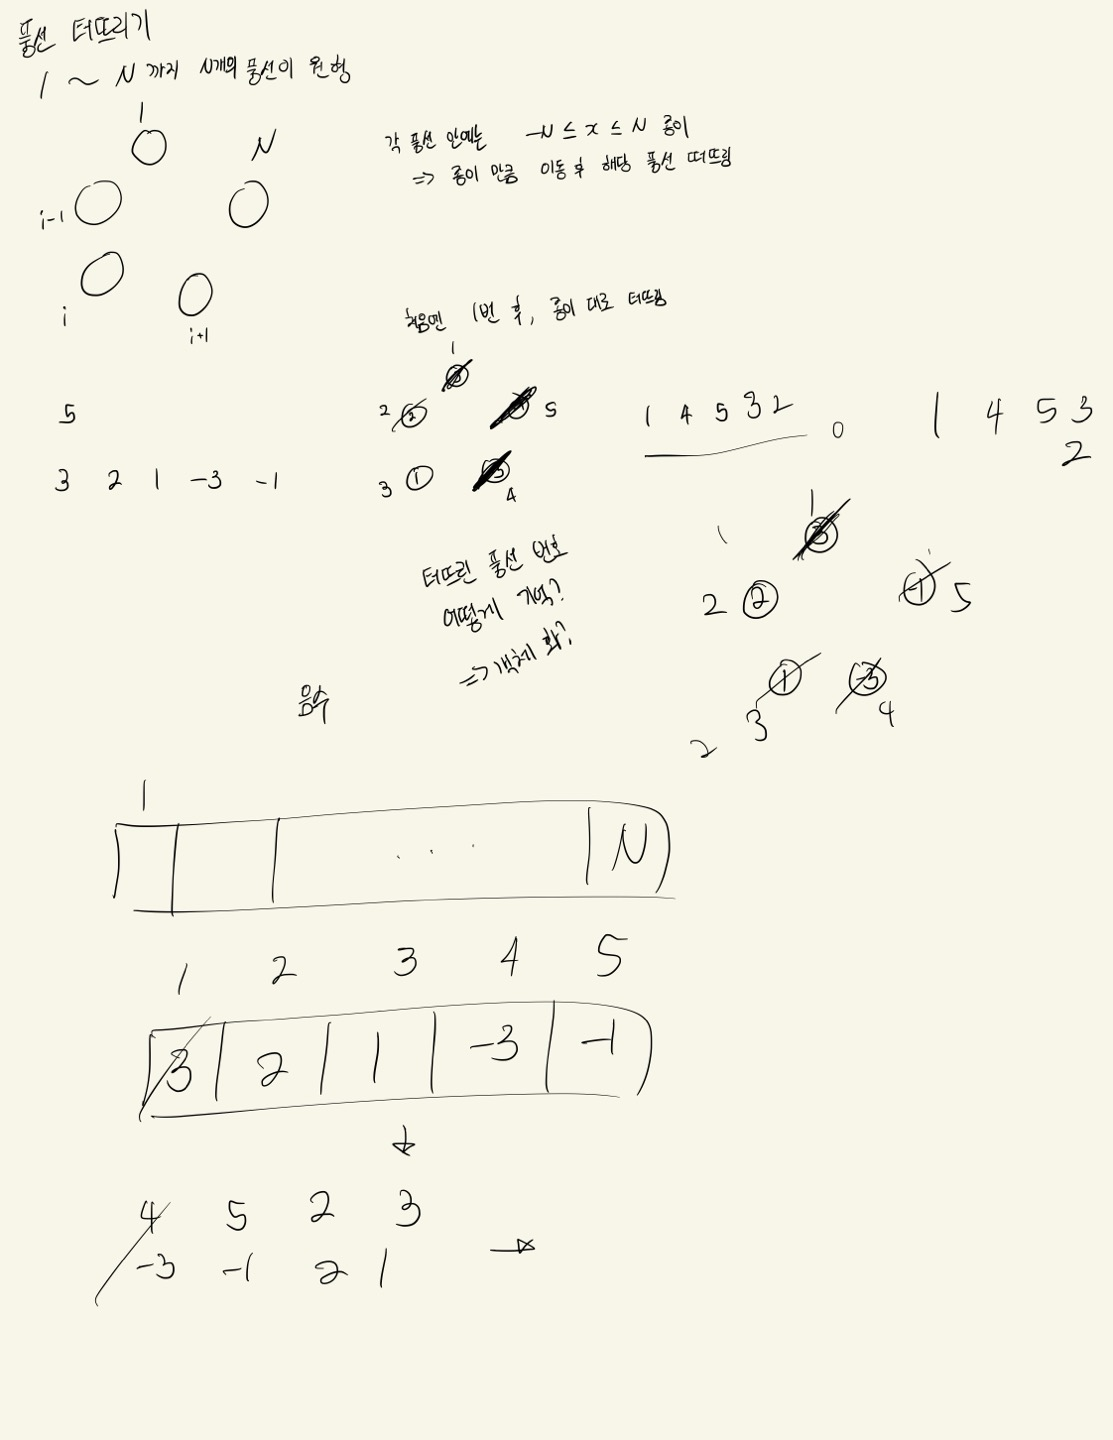 풍선 터뜨리기
1 ~ N 까지 N개의 풍선이 원형
1
N
각 풍선 안에는 -N ≤ x ≤ N 종이
=> 종이 만큼 이동 후 해당 풍선 떠뜨림
i-1
i
i+1
처음엔 1번 후, 종이 대로 터뜨림
1
3
2 2
5
3 1
-3
4
5
3 2 1 -3 -1
1 4 5 3 2
0
1 4 5 3
2
터뜨린 풍선 번호
어떻게 기억?
=> 객체화?
1
3
2 2
-1 5
1
3
-3
4
2
음수
1
... N
1 2 3 4 5
3 2 1 -3 -1
↓
4 5 2 3
-3 -1 2 1
→